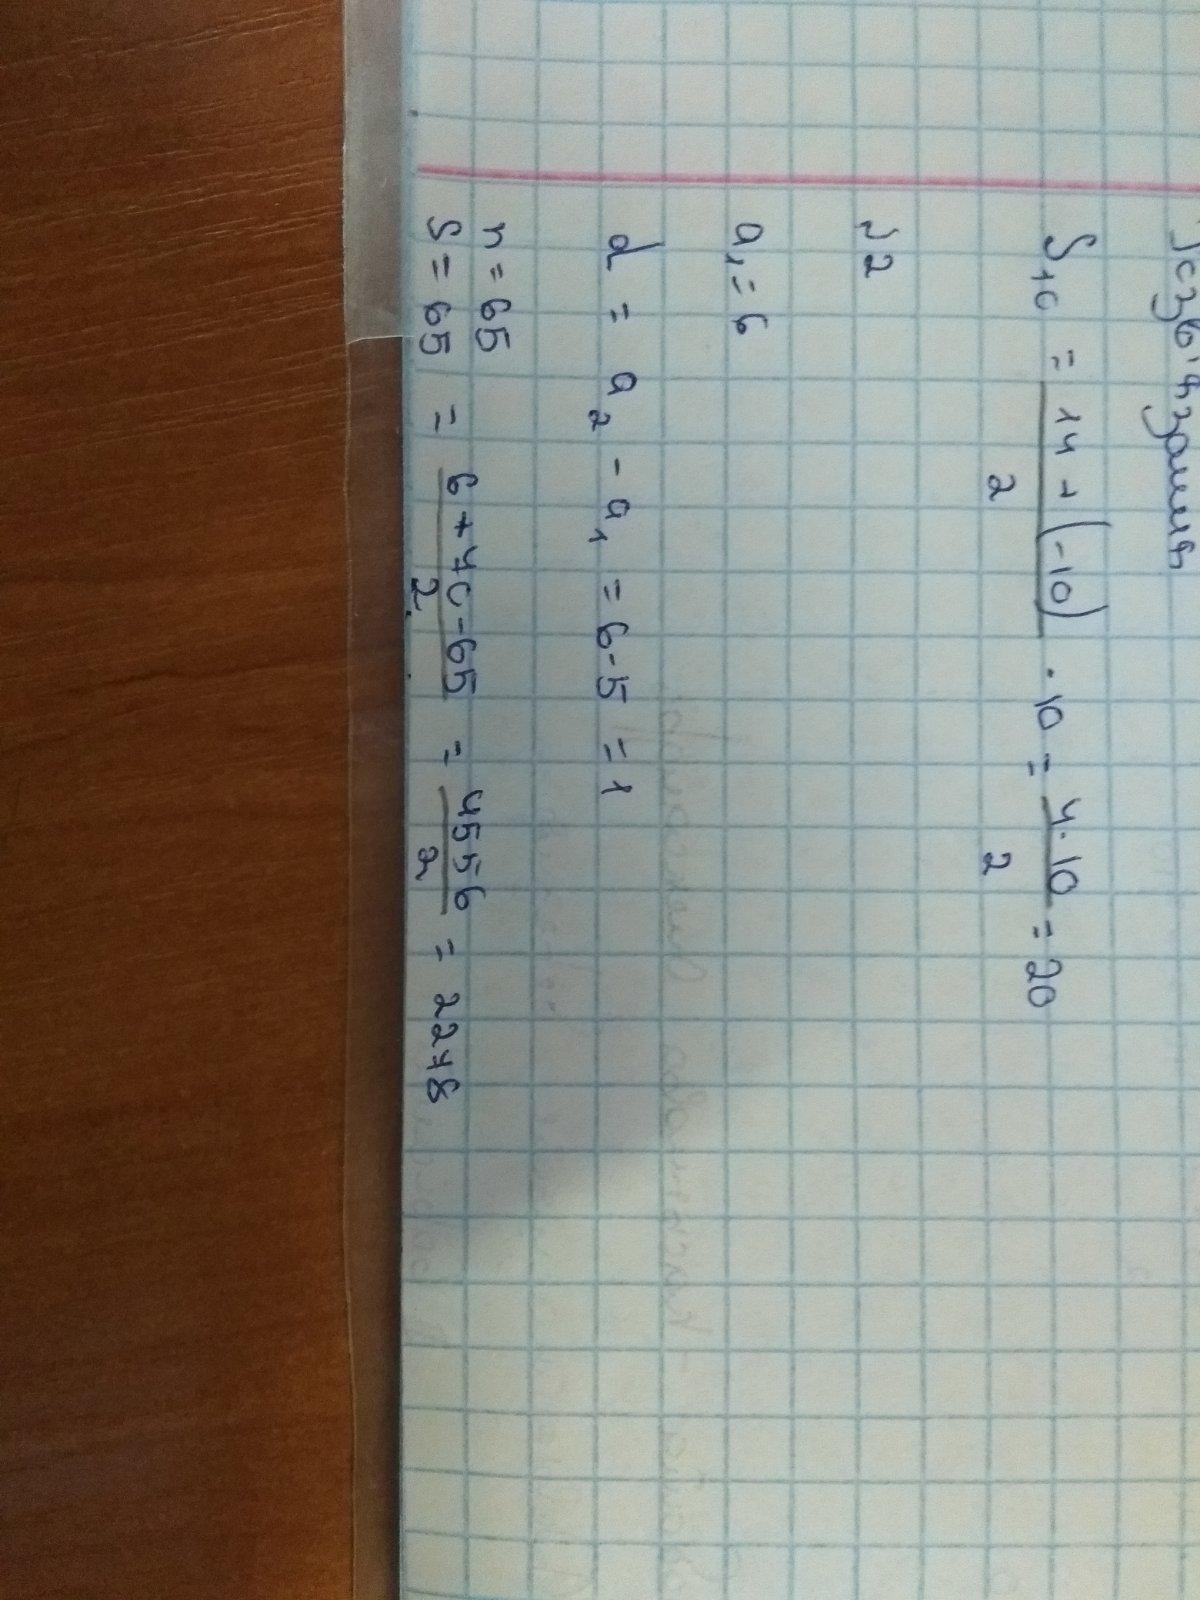 Розв'язання
S₁₀ = 14 + (-10) / 2 · 10 = 4·10 / 2 = 20
№2
a₁ = 6
d = a₂ - a₁ = 6 - 5 = 1
n = 65
S = 65 = 6 + 70 - 65 / 2 = 4556 / 2 = 2278